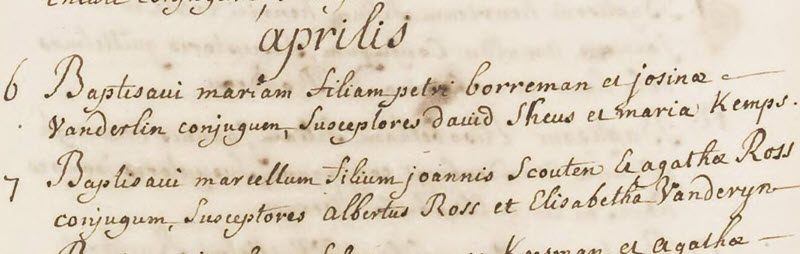 aprilis
6 Baptisavi mariam filiam petri borreman et josinæ
Vanderlin conjugum, Susceptores david Sheus et maria Kemps.
7 Baptisavi marcellum filium joannis Scouten & agathæ Ross
conjugum, Susceptores Albertus Ross et Elisabetha Vanderyn
et agathæ